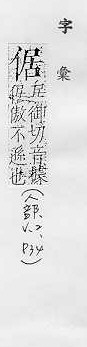 字彙
倨
居御切音據
倨傲不遜也
(人部,V.2,P34)